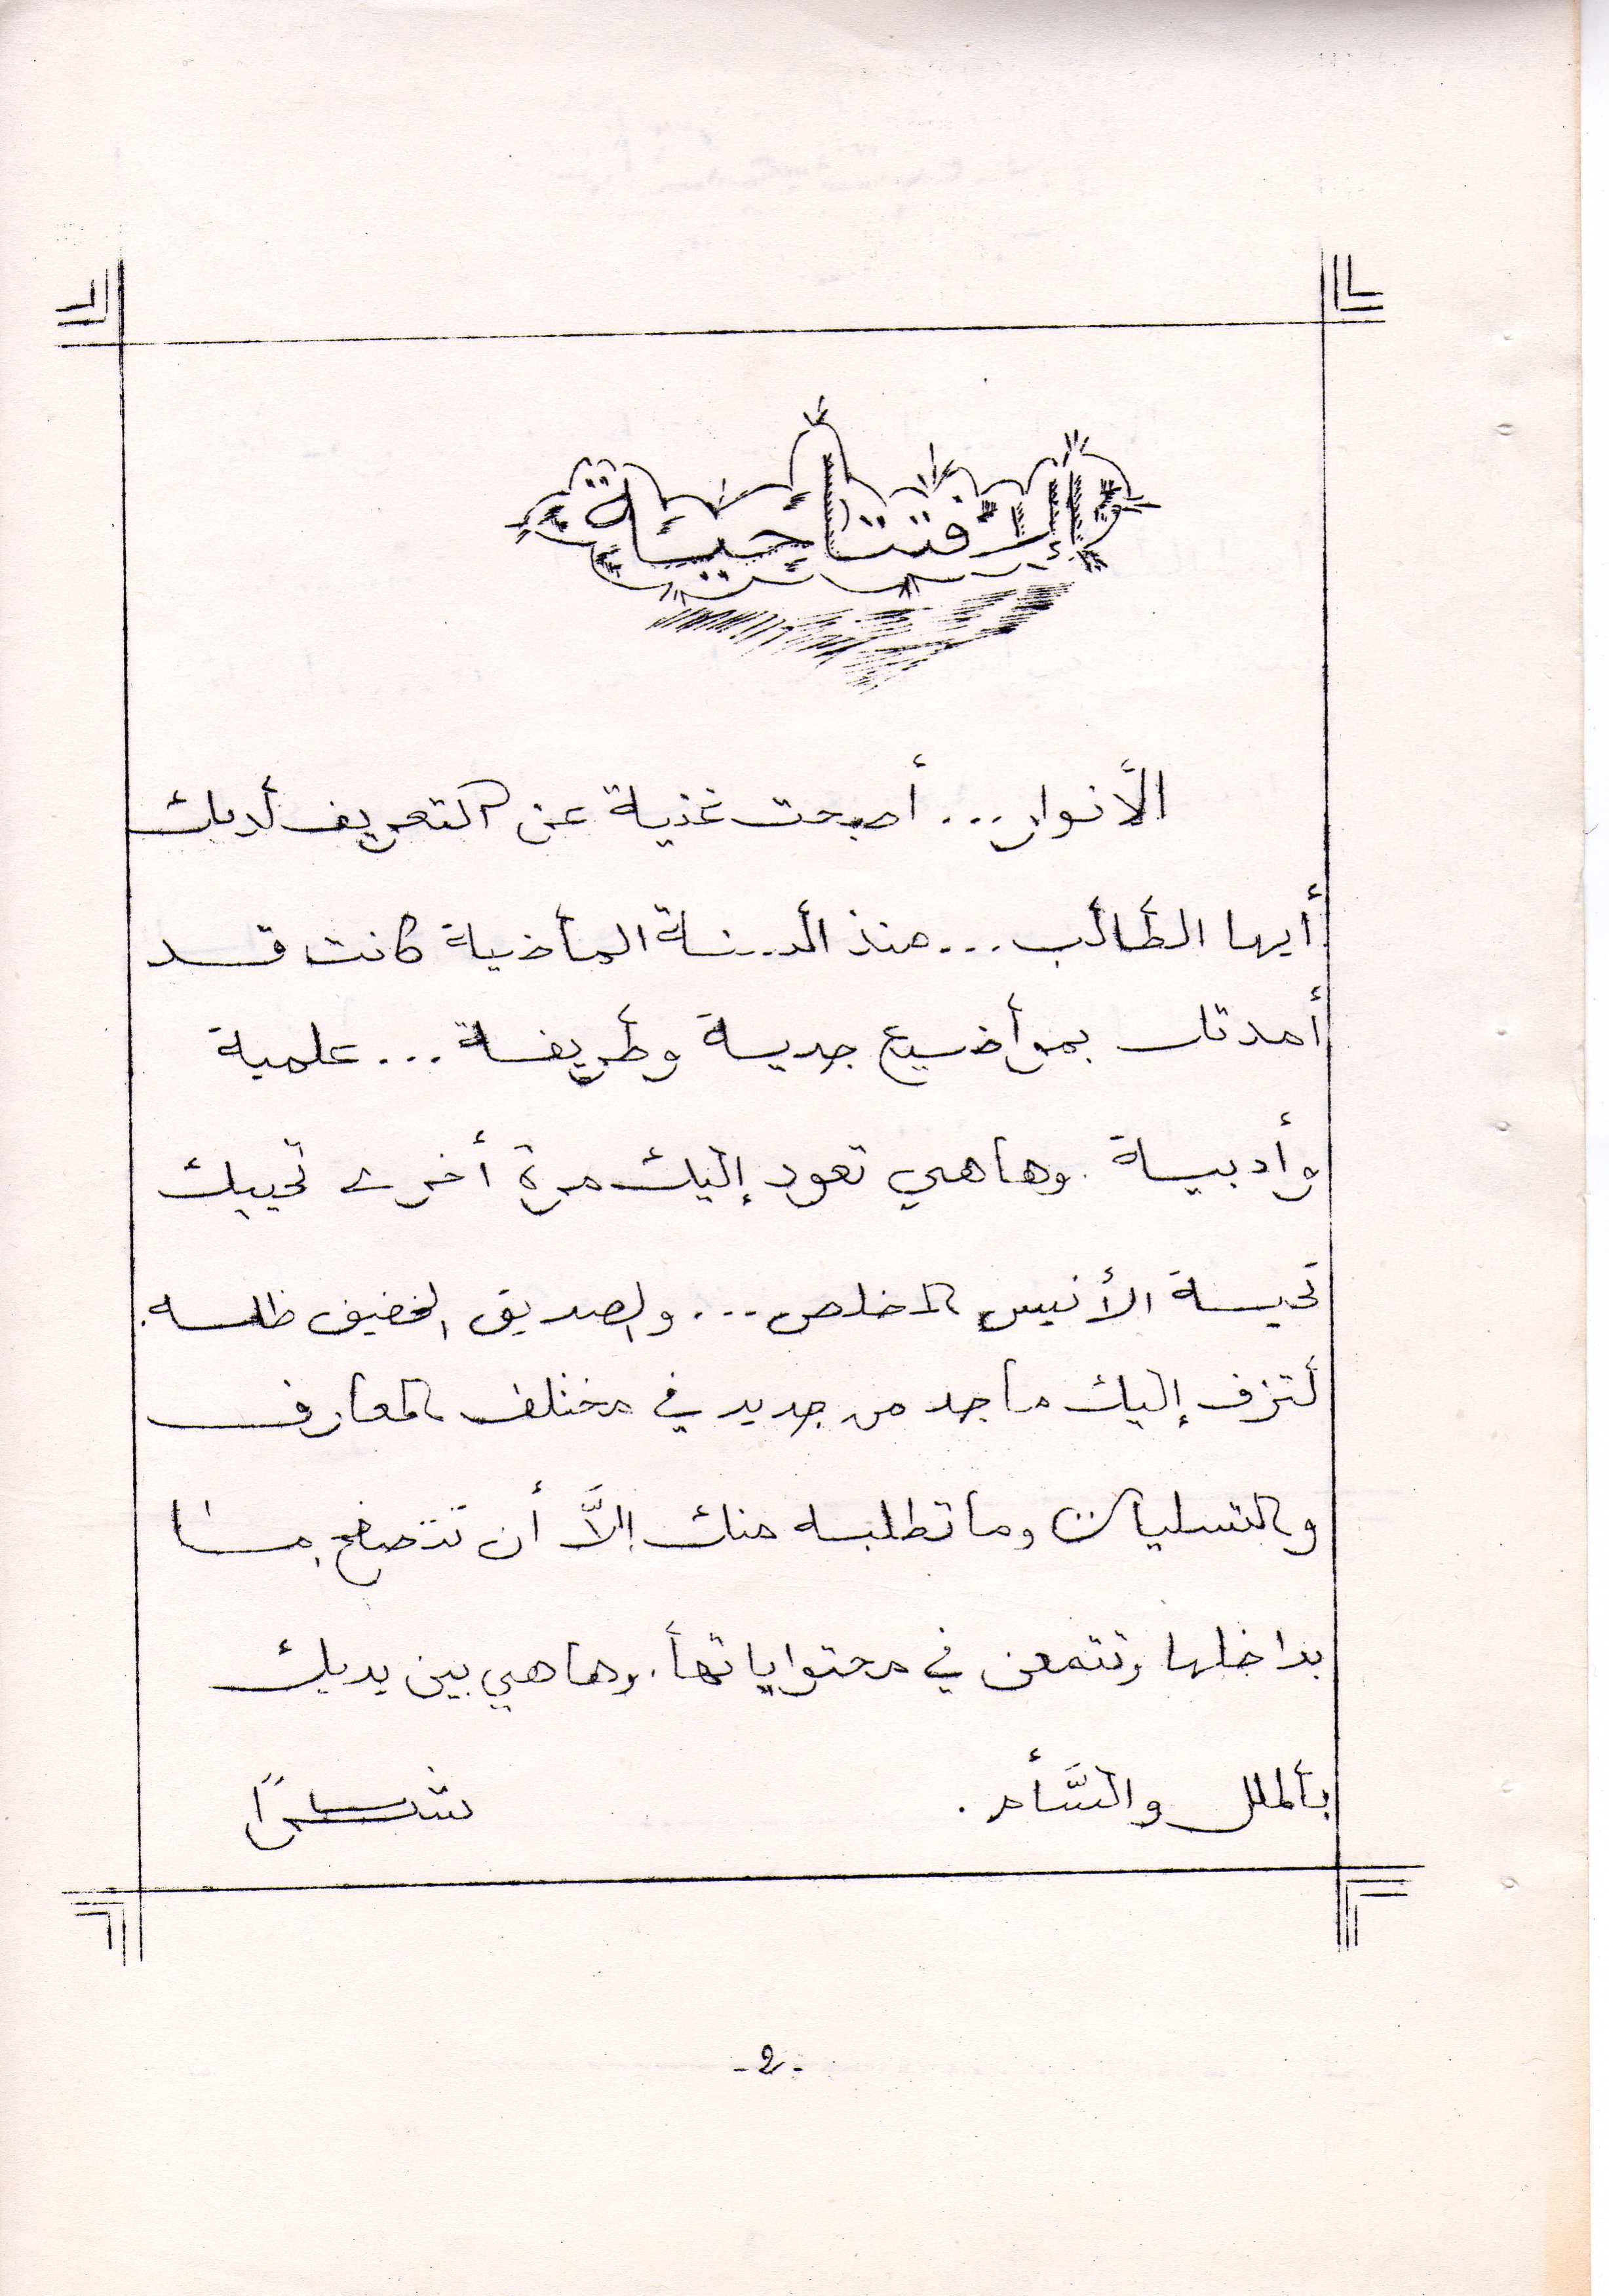 الإفتتاحية
الأنوار... أصبحت غنية عن التعريف لديك
أيها الطالب... منذ السنة الماضية كانت قد
أمدتك بمواضيع جدية وطريفة... علمية
وأدبية. وهاهي تعود إليك مرة أخرى تحييك
تحية الأنيس المخلص... والصديق الخفيف ظله.
لتزف إليك ما جد من جديد في مختلف المعارف
والتسليات وما تطلبه منك إلاَّ أن تتصفح ما
بداخلها وتتمعن في محتواياتها. وهاهي بين يديك
بالملل والسَّأم. شكرًا
-2-